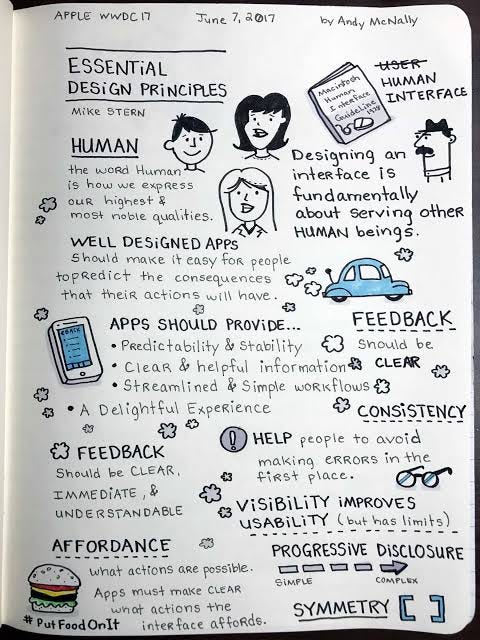 APPLE WWDC17 June 7, 2017 by Andy McNally
ESSENTIAL
DESIGN PRINCIPLES
Mike STERN
Macintosh
Human
Interface
Guideline
USER
HUMAN
INTERFACE
HUMAN
the word Human
is how we express
our highest &
most noble qualities.
Designing an
interface is
fundamentally
about serving other
HUMAN beings.
WELL DESIGNED APPS
Should make it easy for people
to predict the consequences
that their actions will have.
APPS SHOULD PROVIDE...
• Predictability & Stability
• Clear & helpful information
• Streamlined & Simple workflows
• A Delightful Experience
FEEDBACK
Should be
CLEAR
CONSISTENCY
FEEDBACK
Should be CLEAR,
IMMEDIATE, &
UNDERSTANDABLE
! HELP people to avoid
making ERRORS in the
first place.
VISIBILITY IMPROVES
USABILITY (but has limits)
AFFORDANCE
what actions are possible.
Apps must make CLEAR
what actions the
interface affords.
#PutFoodOnIt
PROGRESSIVE DISCLOSURE
SIMPLE COMPLEX
SYMMETRY [ ]